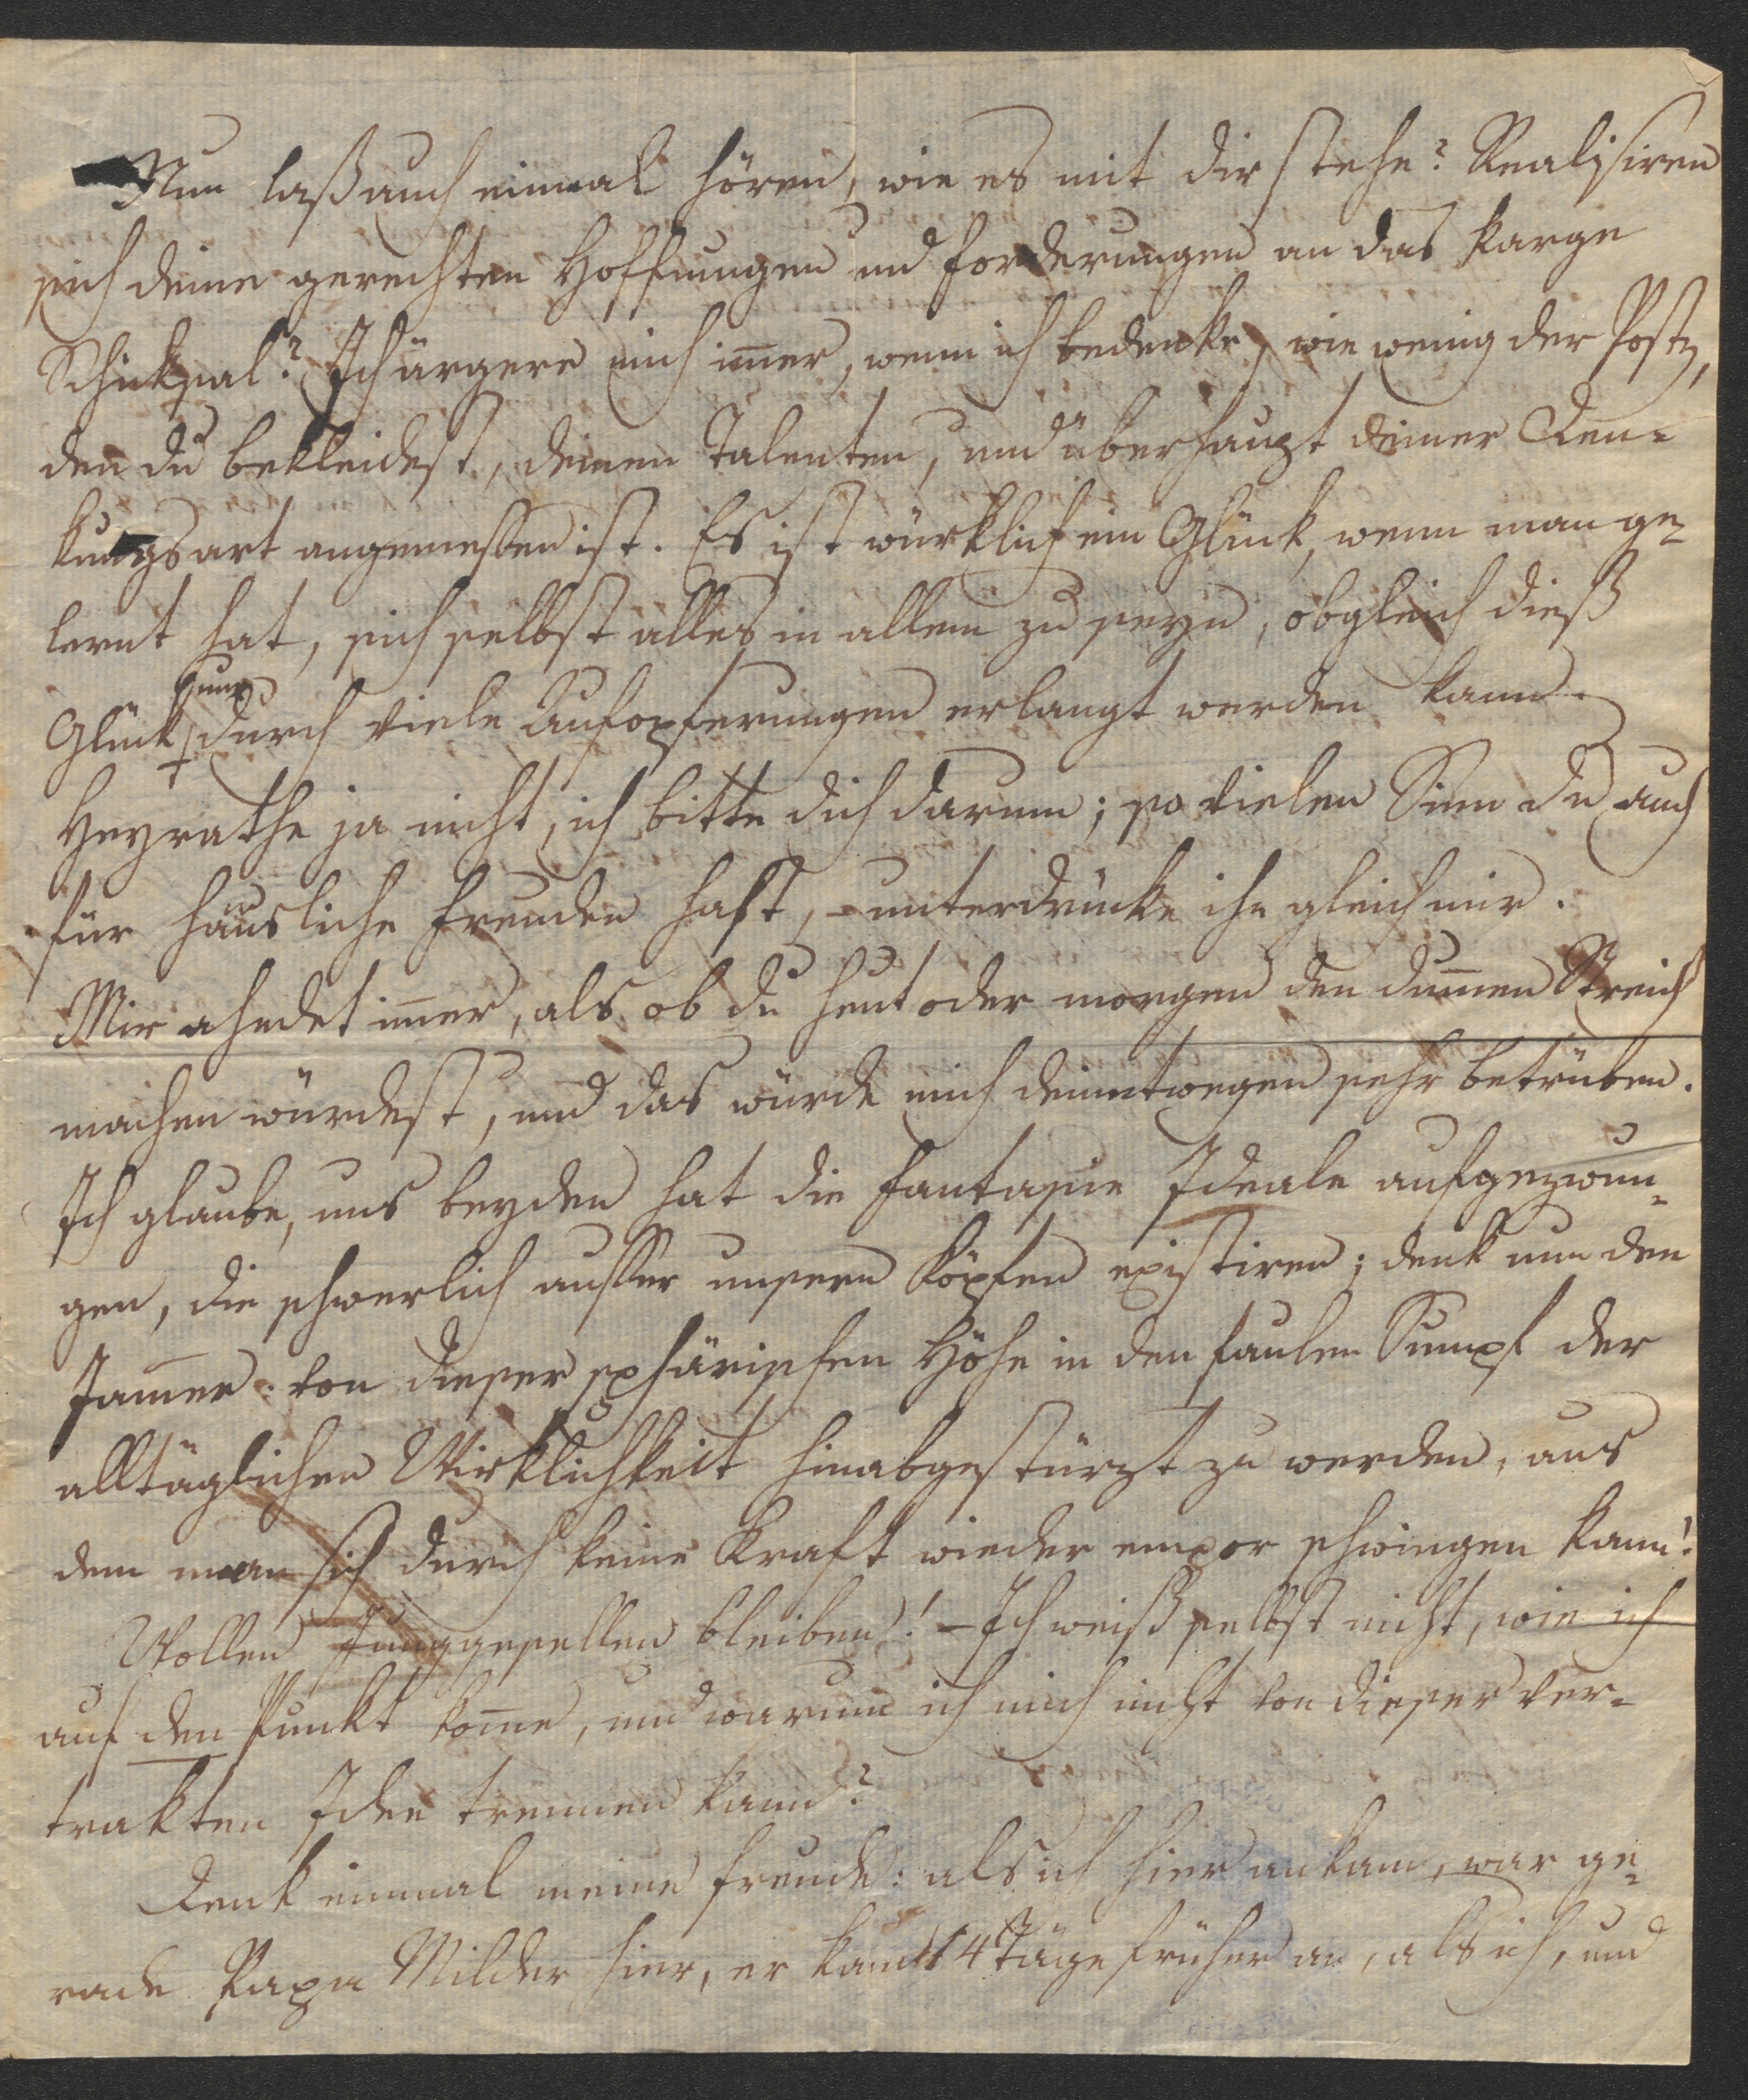 Nun laß auch einmal hören, wie es mit dir stehe? Realisiren
sich deine gerechten Hoffnungen und Forderungen an das karge
Schiksal? Ich ärgere mich im̄er, wenn ich bedenke, wie wenig der Posten,
den du bekleidest, deinen Talenten, und überhaupt deiner Den-
kungsart angemessen ist. Es ist würklich ein Glück, wenn man ge-
lernt hat, sich selbst alles in allem zu seyn, obgleich dieß
nur
Glück durch viele Aufopferungen erlangt werden kann.
Heyrathe ja nicht, ich bitte dich darum; so vielen Sinn du auch
für häusliche Freuden hast, – unterdrücke ihn gleich mir.
Mir ahndet im̄er, als ob du heut oder morgen den dum̄en Streich
machen würdest, und das würde mich deinetwegen sehr betrüben.
Ich glaube, uns beyden hat die Fantasie Ideale aufgezwun-
gen, die schwerlich ausser unsern Köpfen existiren; denk nun den
Jam̄er: von dieser sphärischen Höhe in den faulen Sumpf der
alltäglichen Wirklichkeit hinabgestürzt zu werden, aus
dem man sich durch keine Kraft wieder empor schwingen kann!
Wollen Junggesellen bleiben! – Ich weiß selbst nicht, wie ich
auf den Punkt kom̄e, und warum ich mich nicht von dieser ver-
trakten Idee trennen kann?
Denk einmal meine Freude: als ich hier ankam, war ge-
rade Papa Milder hier, er kam 14 Täge früher an, als ich, und